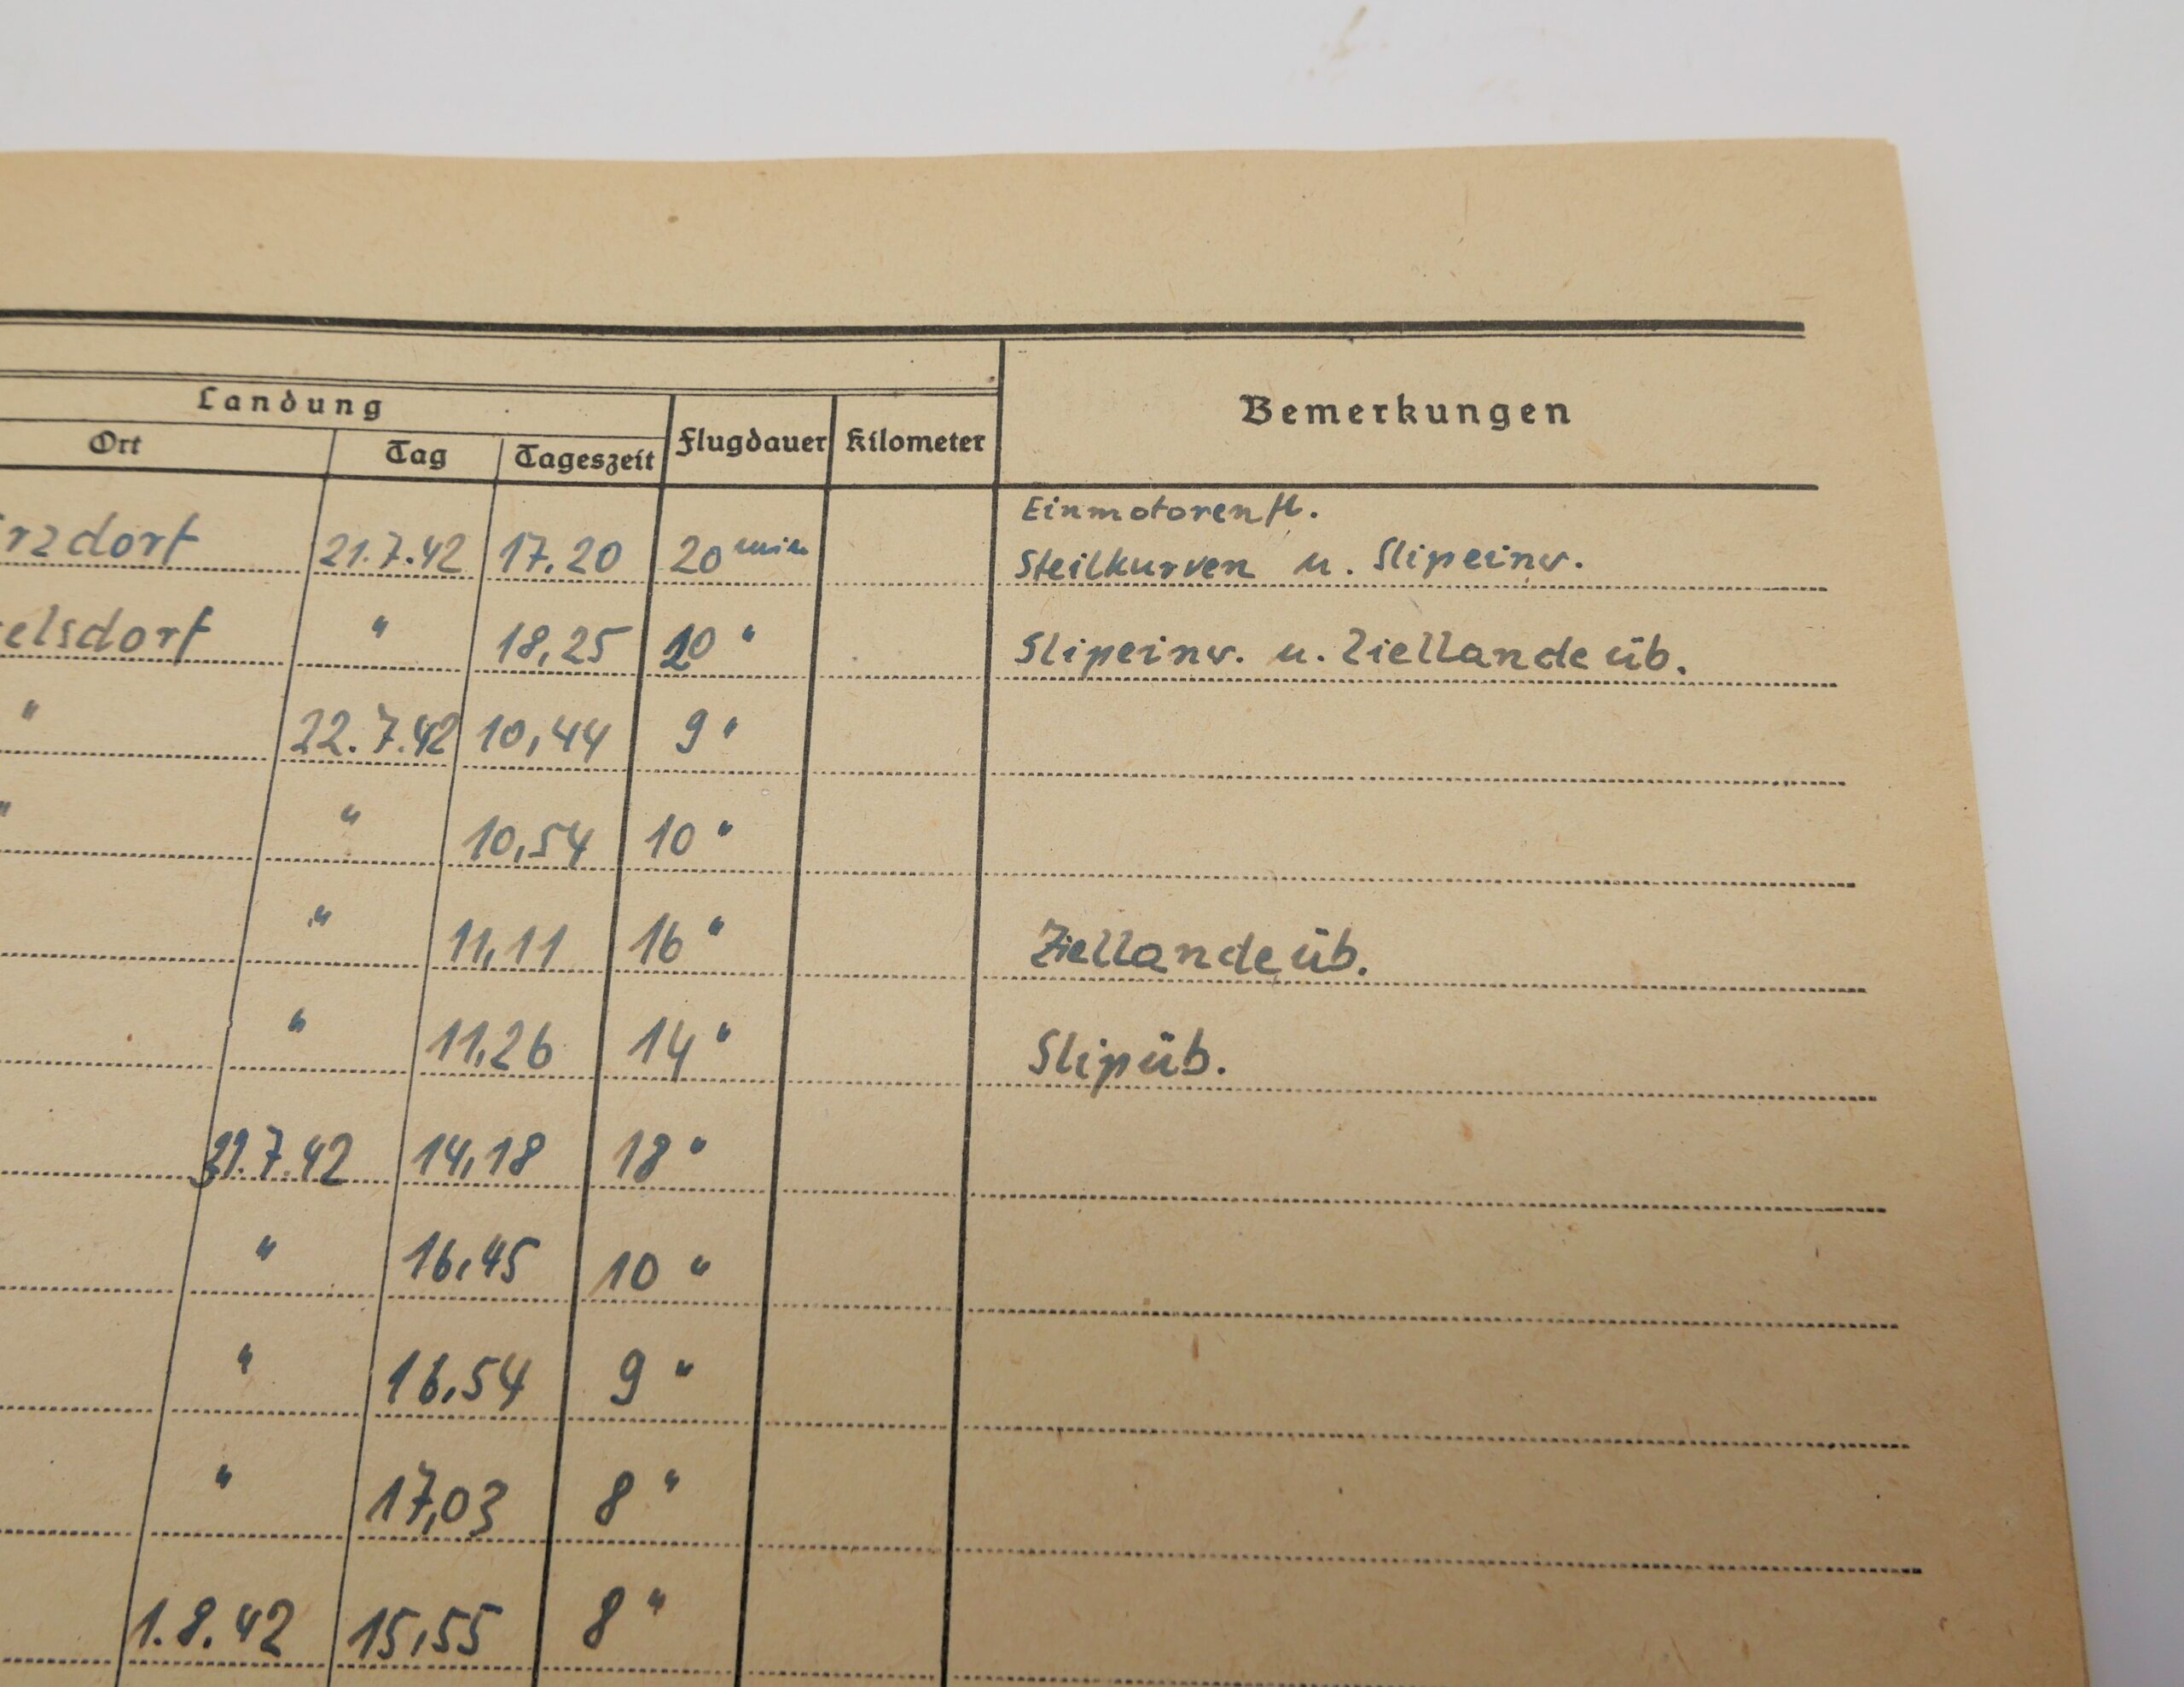 Landung
Bemerkungen
Ort Tag Tageszeit Flugdauer Kilometer
Einmotorenfl.
rzdorf 21.7.42 17.20 20 min Steilkurven u. Slipeinw.
elsdorf " 18,25 20 " Slipeinw. u. Ziellandeüb.
" 22.7.42 10,44 9 "
" " 10,54 10 "
" 11,11 16 " Ziellandeüb.
" 11,26 14 " Slipüb.
31.7.42 14,18 18 "
" 16,45 10 "
" 16,54 9 "
" 17,03 8 "
1.8.42 15,55 8 "